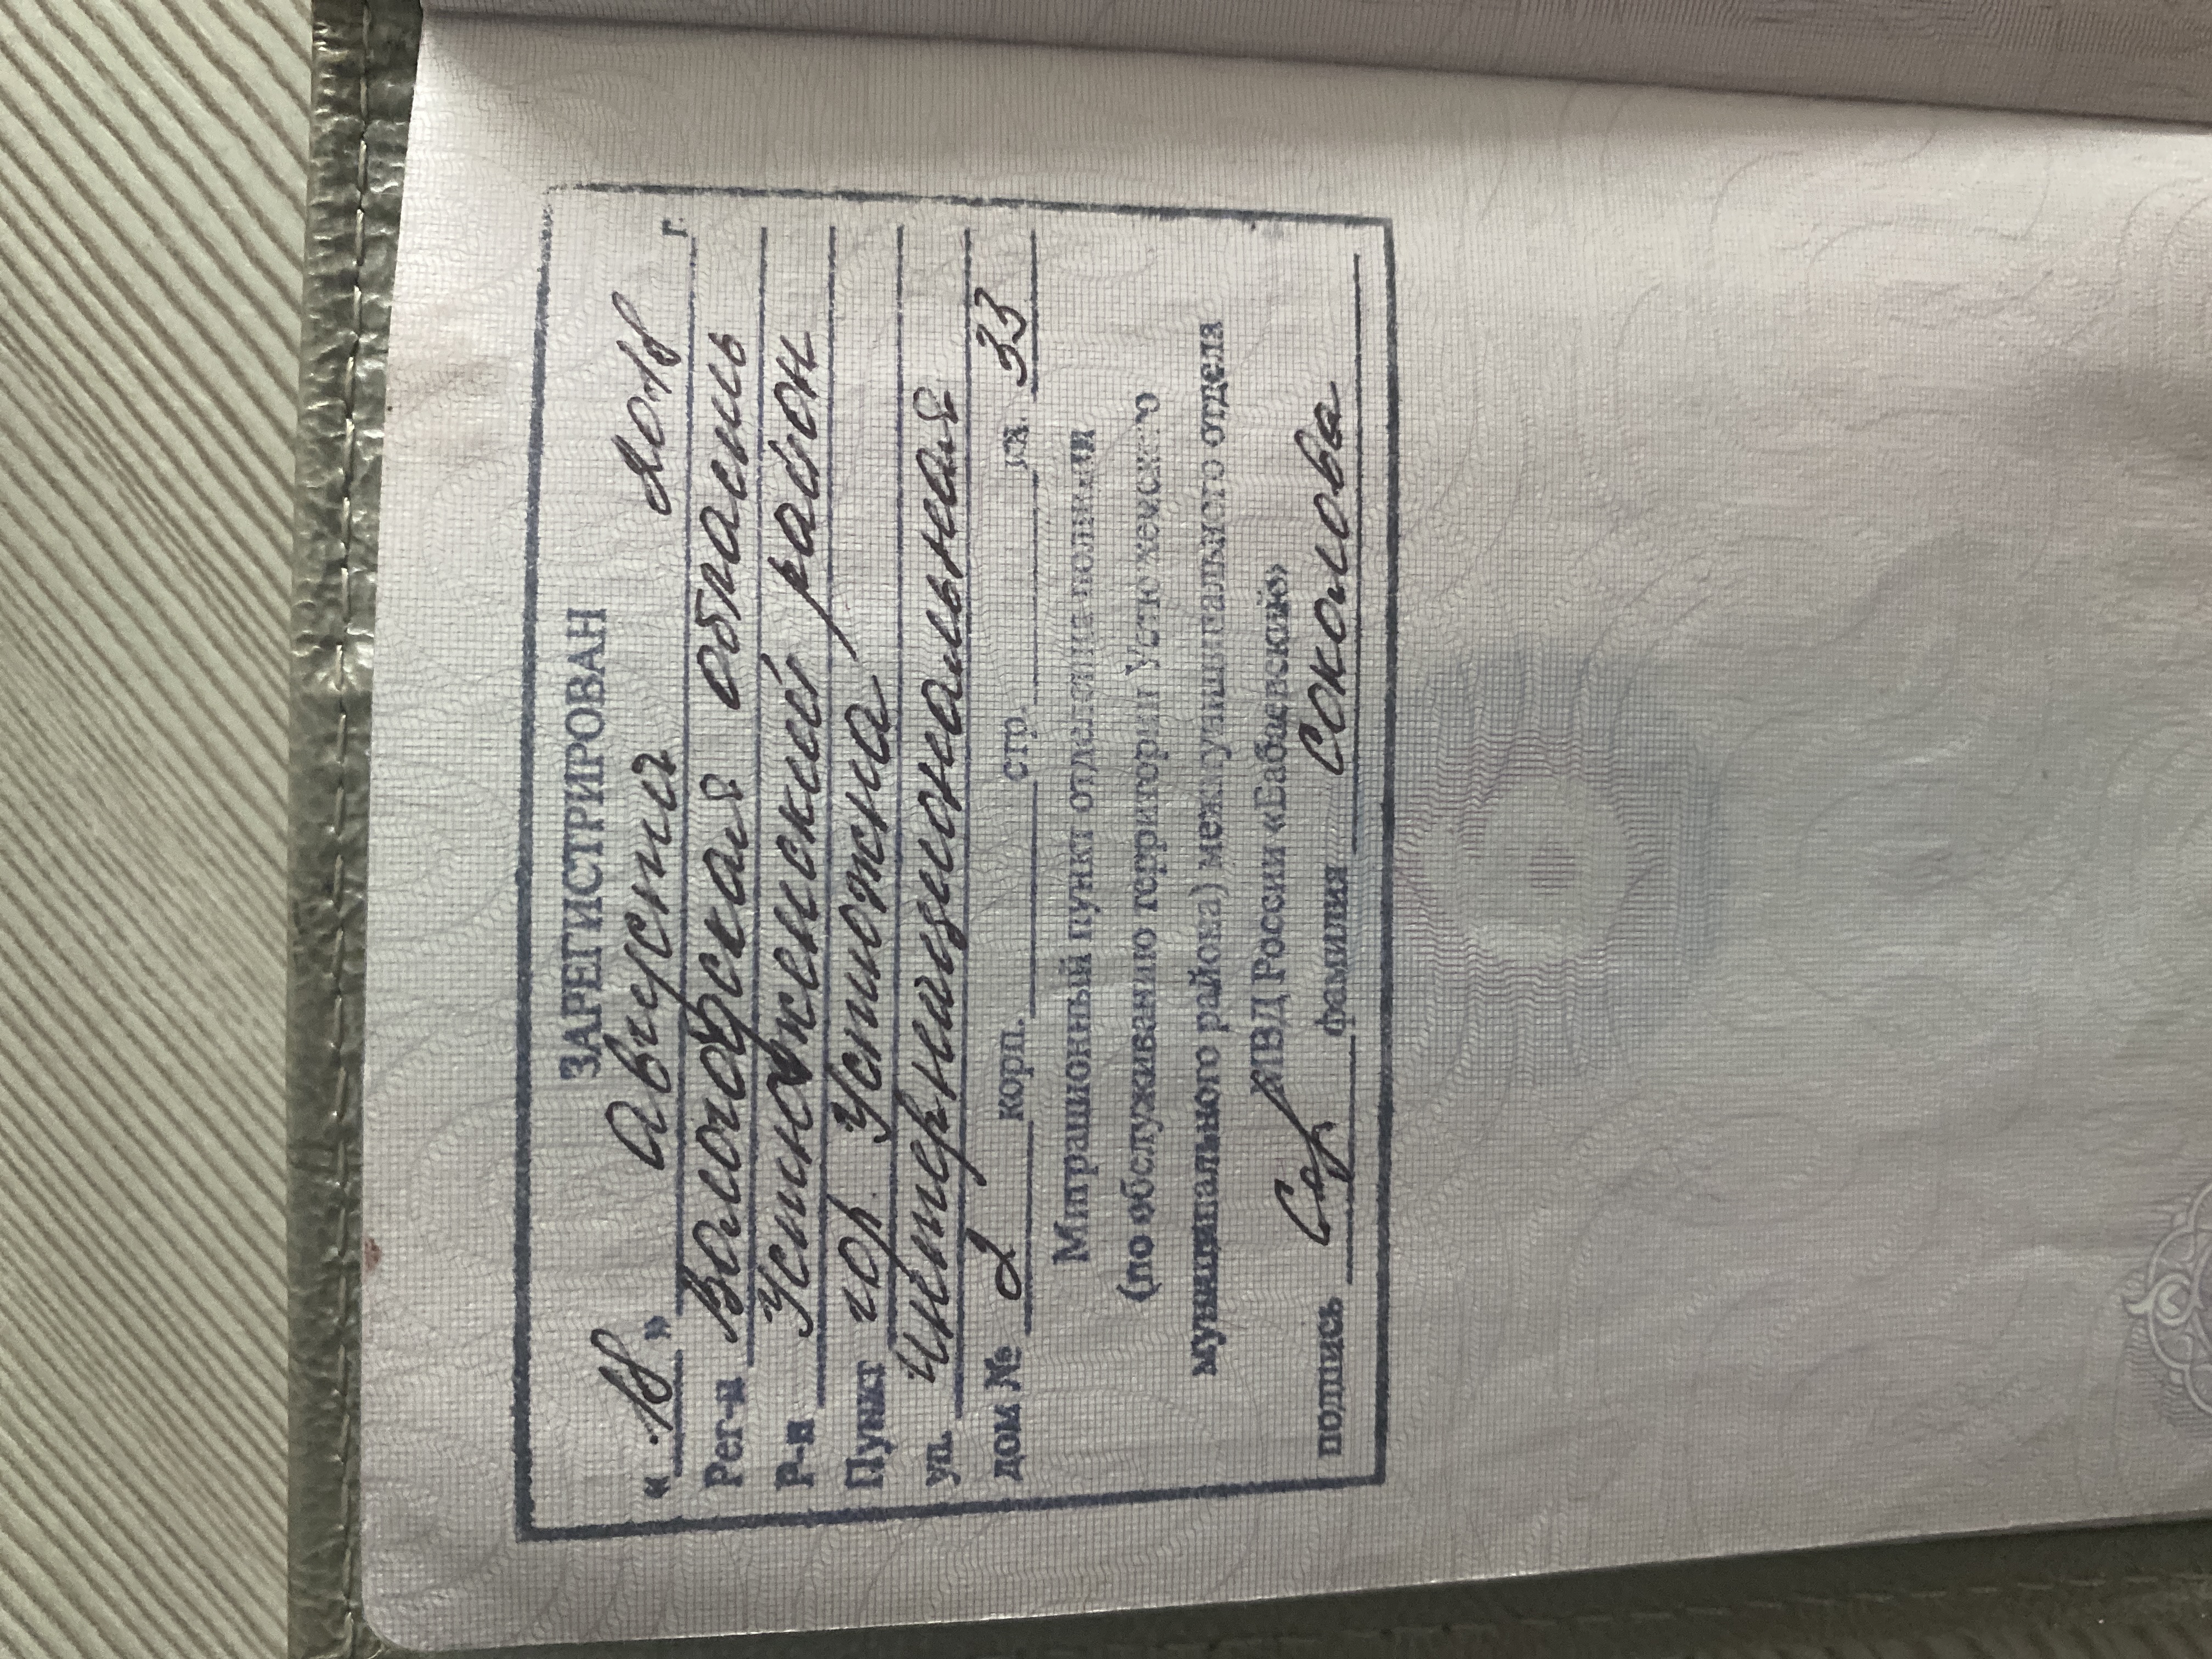 ЗАРЕГИСТРИРОВАН
«18» августа 2018 г.
Рег-н Вологодская область
Р-н Устюженский район
Пункт гор. Устюжна
ул. Интернациональная
дом № 2 корп. стр. кв. 33
Миграционный пункт отделения полиции
(по обслуживанию территории Устюженского
муниципального района) межмуниципального отдела
МВД России «Бабаевский»
подпись фамилия Соколова